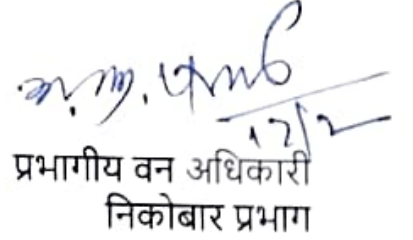 12/2
प्रभागीय वन अधिकारी
निकोबार प्रभाग